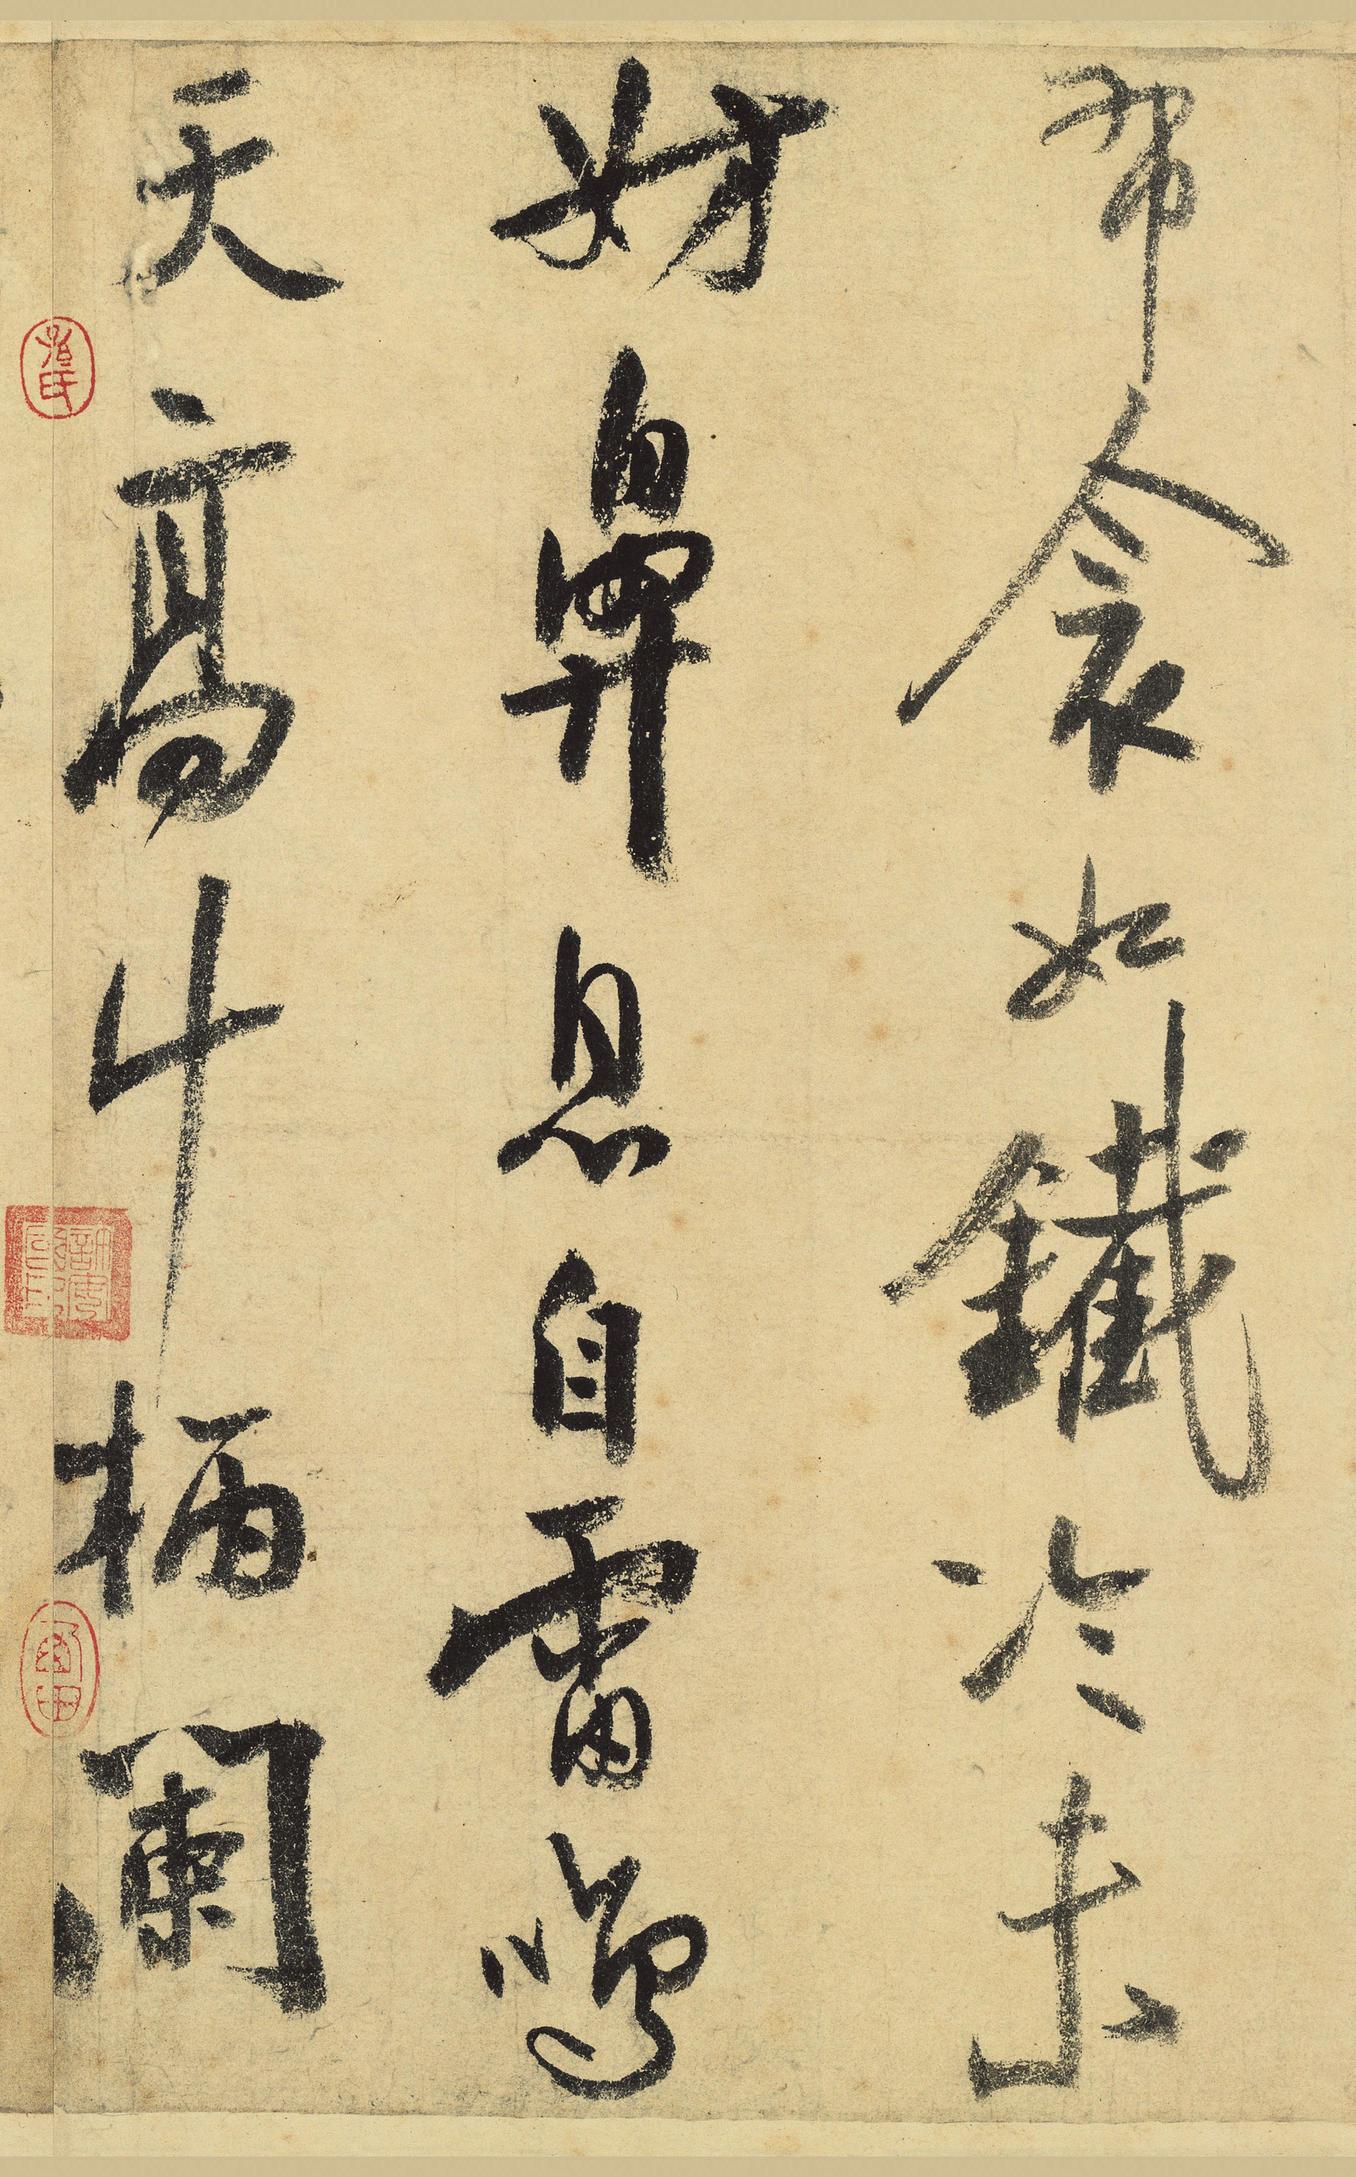 布衾如鐵冷未
妨鼻息自雷鳴
天高斗柄闌